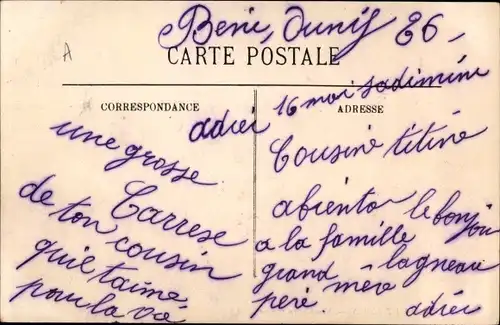 Beni, Ounif 26,
CARTE POSTALE
A
CORRESPONDANCE
ADRESSE
adrei 16 moi
une grosse
Carrese
de ton cousin
qui e taime
pour la vie
Cousine titine
abiento le bonjou
a la famille
grand mère lagneau
peré
adrei